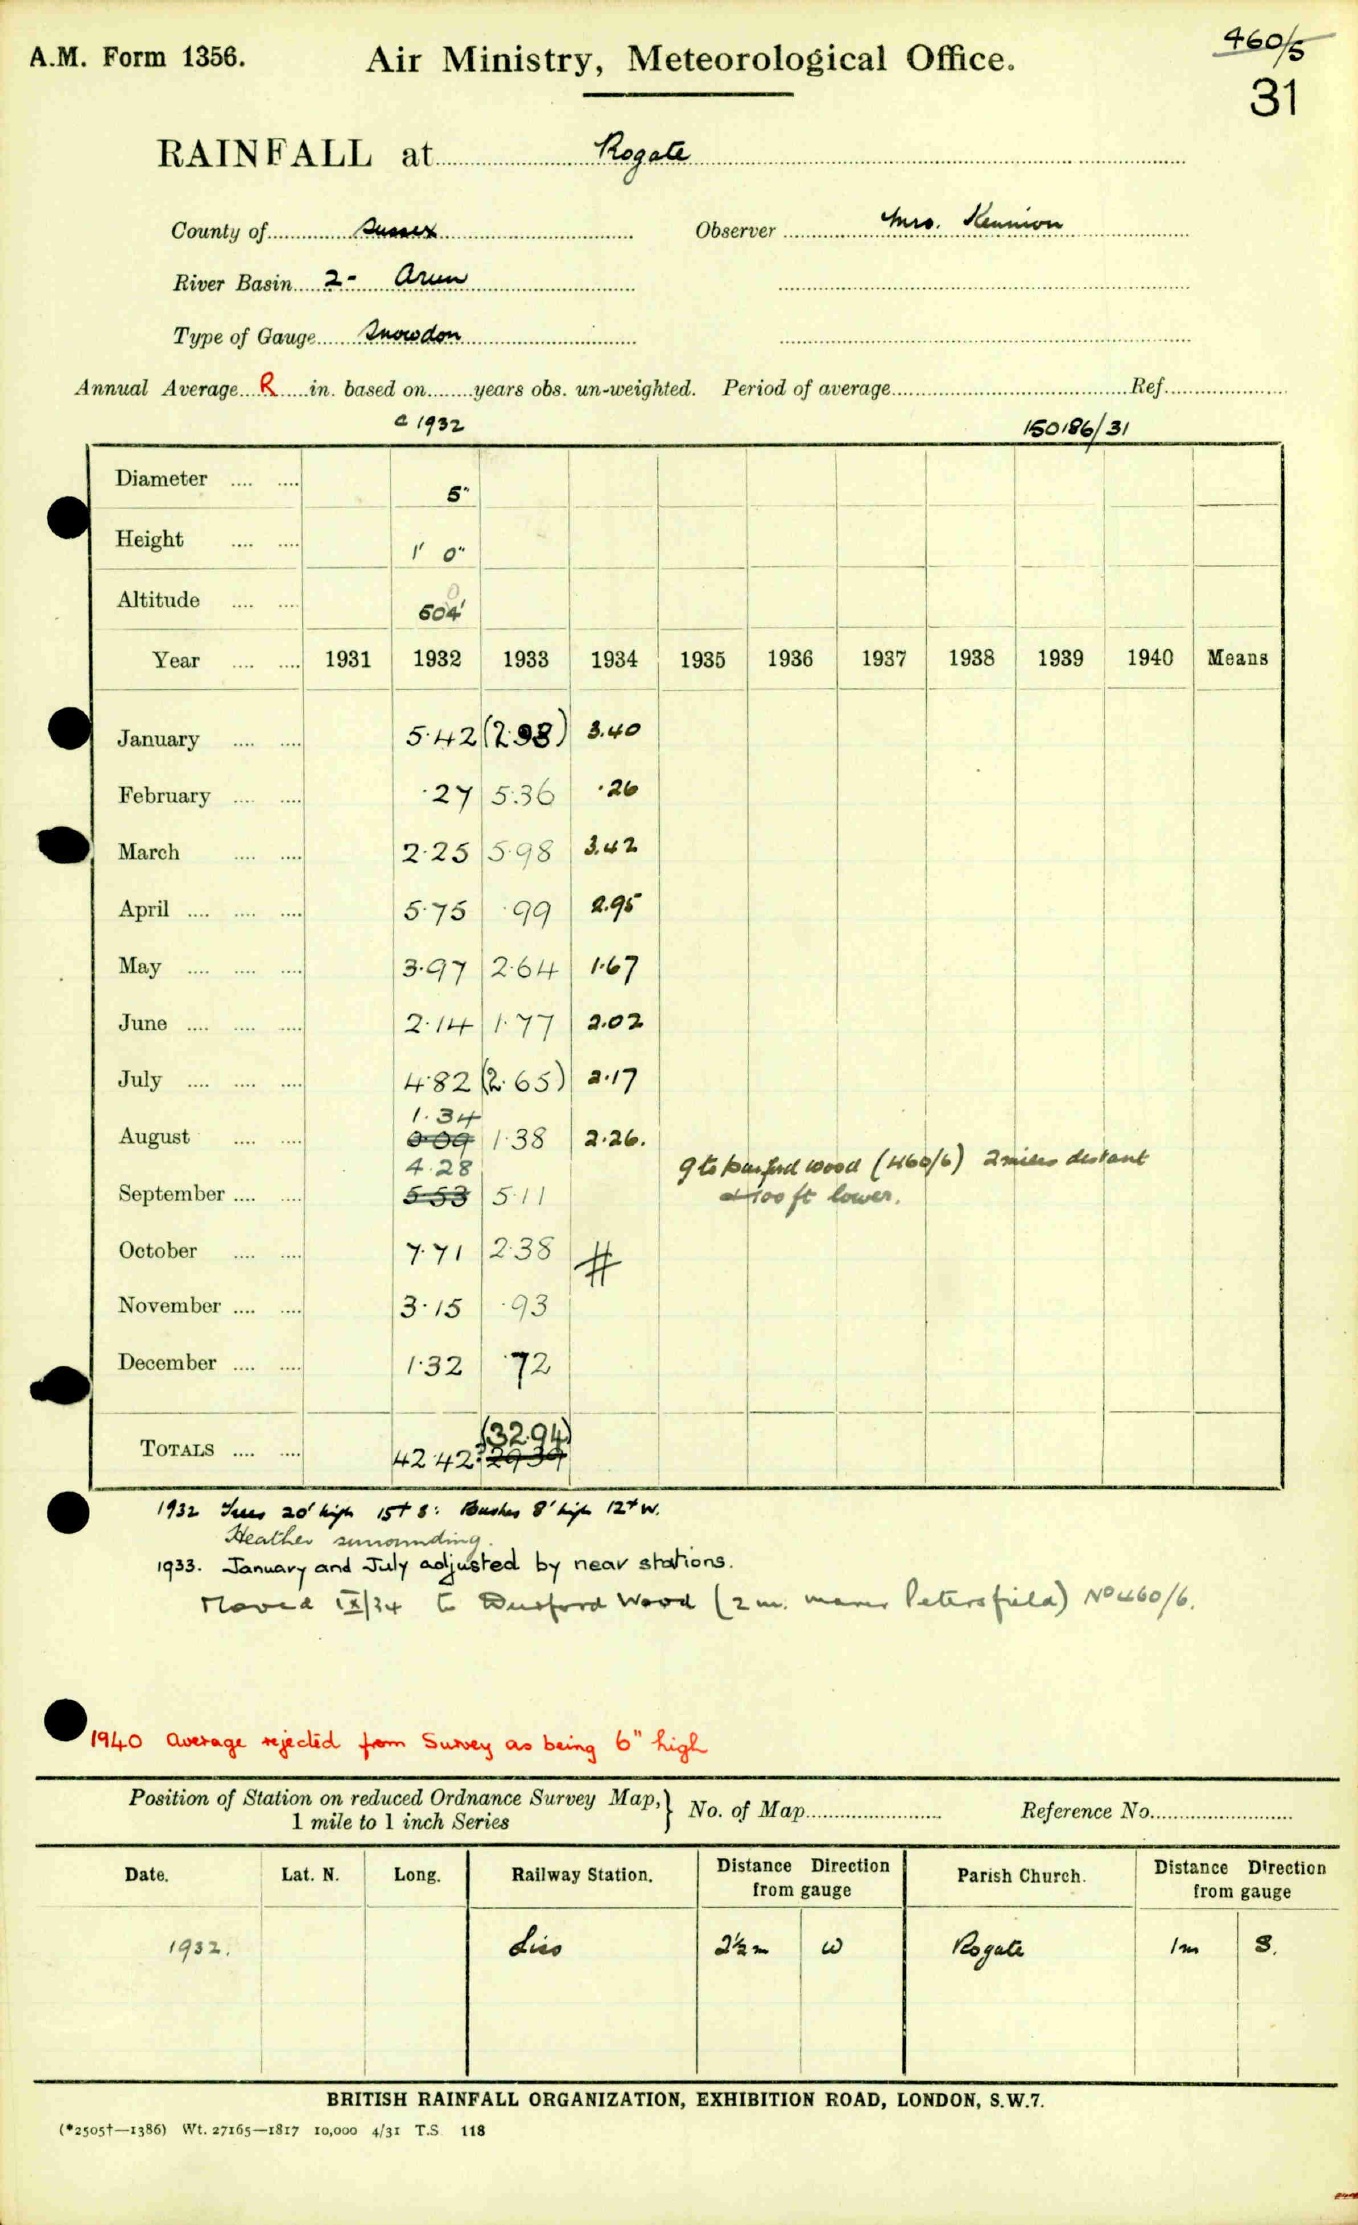 460/5
A.M. Form 1356. Air Ministry, Meteorological Office.
31
RAINFALL at Rogate
County of Sussex Observer Mrs. Kennion
River Basin 2- Arun
Type of Gauge Snowdon
Annual Average R in. based on years obs. un-weighted. Period of average Ref.
c 1932 150186/31
Diameter 5"
Height 1' 0"
Altitude 604'
Year 1931 1932 1933 1934 1935 1936 1937 1938 1939 1940 Means
January 5.42 (2.98) 3.40
February .27 5.36 .26
March 2.25 5.98 3.42
April 5.75 .99 2.95
May 3.97 2.64 1.67
June 2.14 1.77 2.02
July 4.82 (2.65) 2.17
1.34
August 0.09 1.38 2.26.
4.28 g to Durford wood (460/6) 2 miles distant
September 5.53 5.11 100 ft lower.
October 7.71 2.38 #
November 3.15 .93
December 1.32 .72
(32.94)
TOTALS 42.42 29.39
1932 Trees 20' high 15+ S: Bushes 8' high 12+ W.
Heather surrounding.
1933. January and July adjusted by near stations.
Moved IX/34 to Durford Wood (2 m. Petersfield) No 460/6.
1940 Average rejected from Survey as being 6" high
Position of Station on reduced Ordnance Survey Map, } No. of Map Reference No.
1 mile to 1 inch Series
Date. Lat. N. Long. Railway Station. Distance Direction from gauge Parish Church. Distance Direction from gauge
1932. Liss 2½m W Rogate 1m S.
BRITISH RAINFALL ORGANIZATION, EXHIBITION ROAD, LONDON, S.W.7.
(*2505†—1386) Wt. 27165—1817 10,000 4/31 T.S. 118